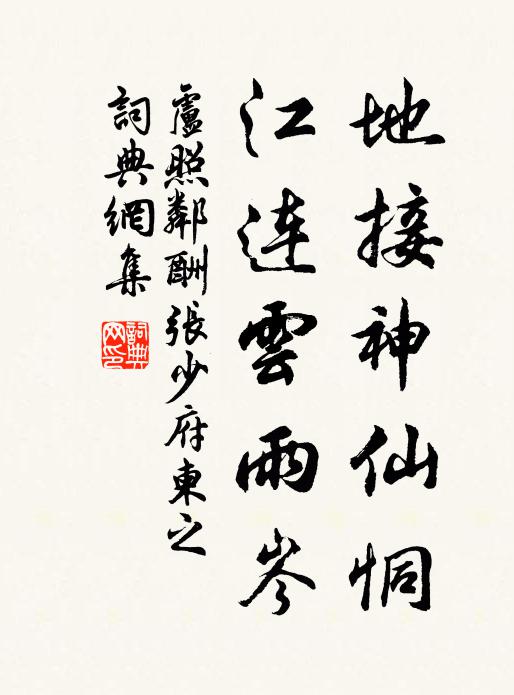 地接神仙恫
江連雲雨岑
盧照鄰酬張少府東之
詞典網集
詞典網印